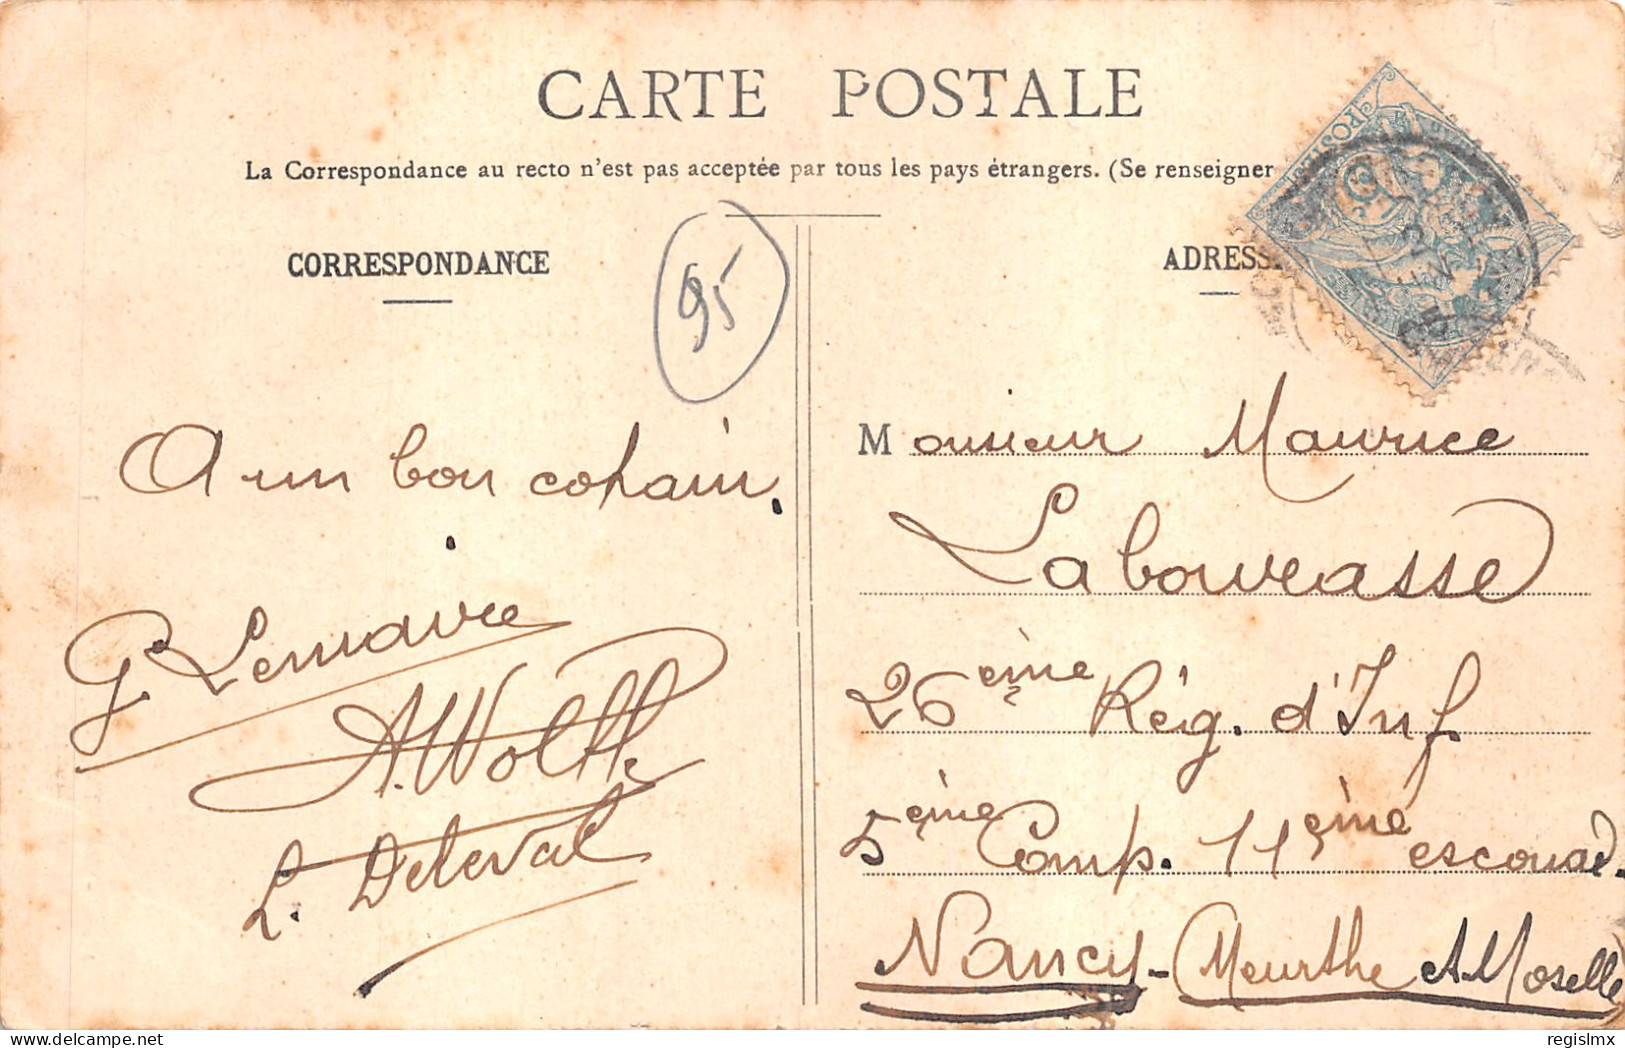 CARTE POSTALE
La Correspondance au recto n'est pas acceptée par tous les pays étrangers. (Se renseigner
CORRESPONDANCE
95
ADRESS
A un bon copain.
G. Lemaire
A. Wolff
L. Deleval
Monsieur Maurice
Labourasse
26ème Rég. d'Inf
5ème Comp. 11ème escouad.
Nancy - Meurthe et Moselle
regislmx